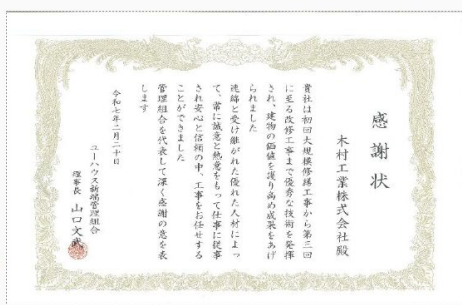 感謝状
木村工業株式会社殿
貴社は初回大規模修繕工事から第三回
に至る改修工事まで優秀な技術を発揮
され、建物の価値を護り高め成果をあげ
られました
連綿と受け継がれた優れた人材によっ
て、常に誠意と熱意をもって仕事に従事
され安心と信頼の中、工事をお任せする
ことができました
管理組合を代表して深く感謝の意を表
します
令和七年二月二十日
ユーハウス新瑞管理組合
理事長 山口文